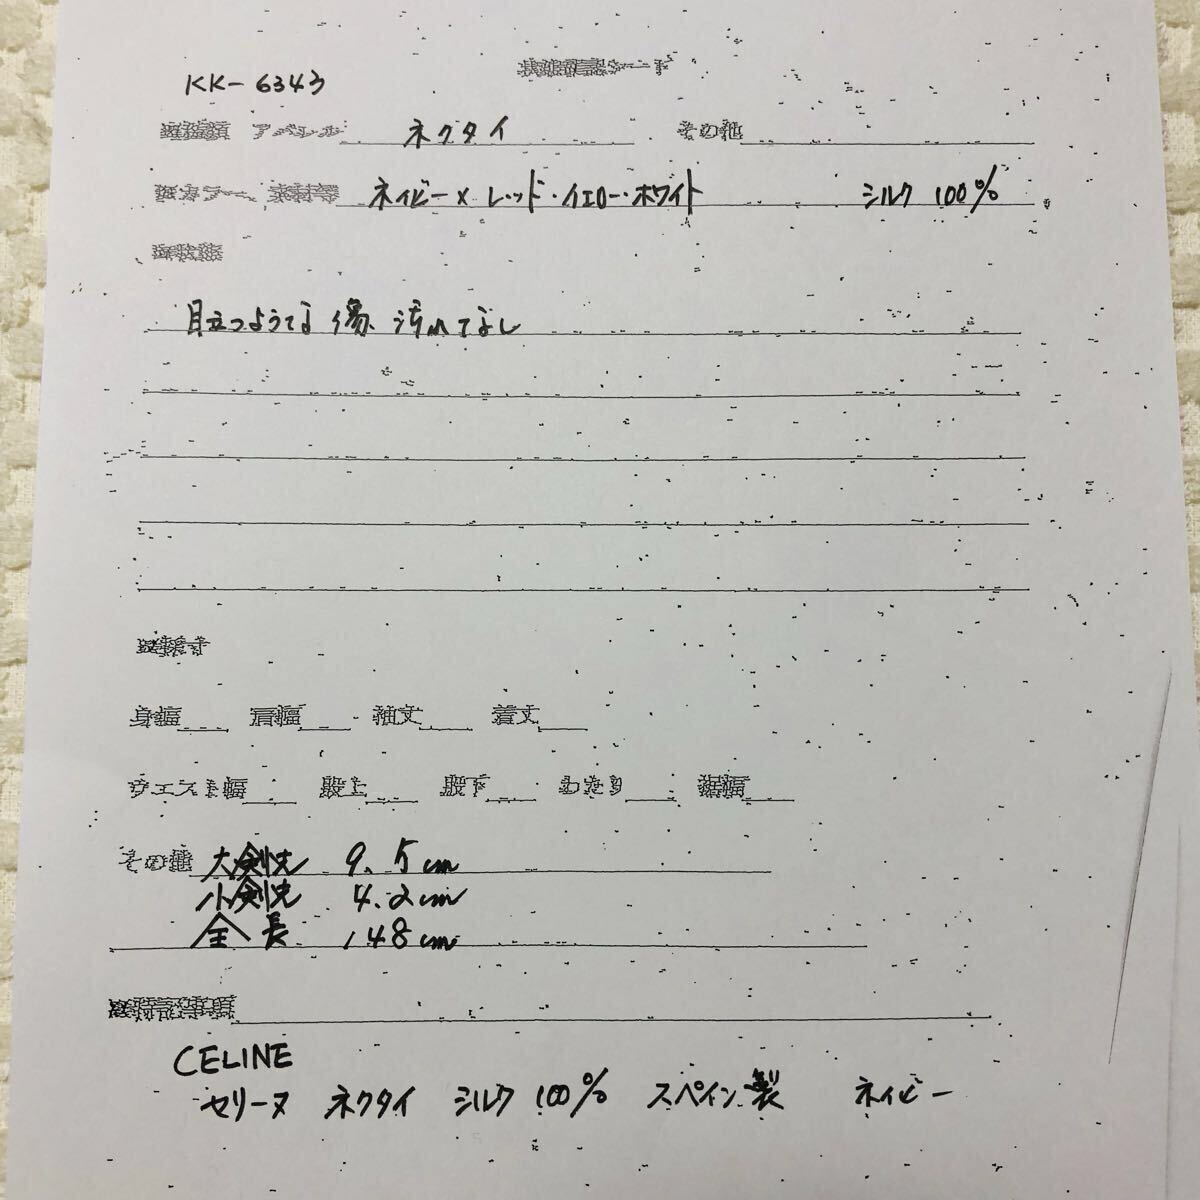 KK-6343
アパレル ネクタイ その他
カラー 素材等 ネイビー×レッド・イエロー・ホワイト シルク 100%
目立つような傷、汚れてなし
身幅 肩幅 袖丈 着丈
ウエスト幅 股上 股下 わたり 裾幅
その他 大剣先 9.5cm
小剣先 4.2cm
全長 148cm
特記事項
CELINE
セリーヌ ネクタイ シルク 100% スペイン製 ネイビー